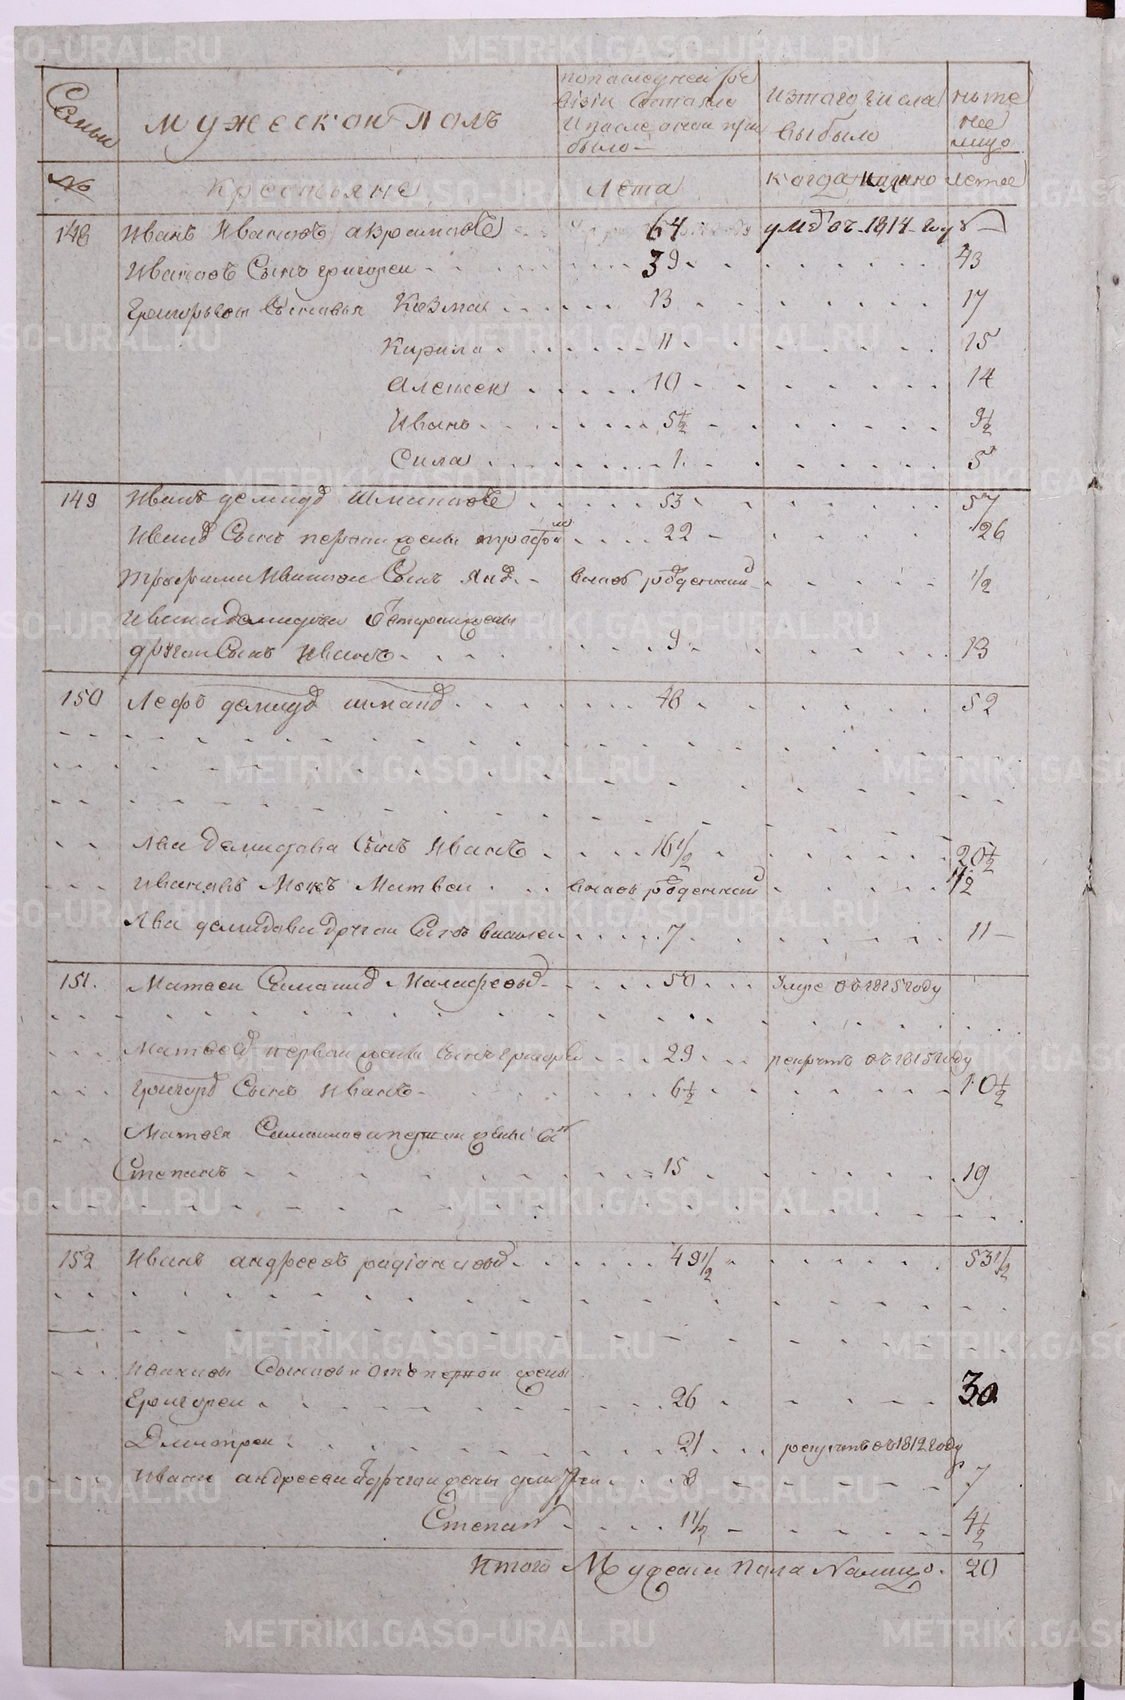 Семьи
мужескои полъ
попоследнеи ре
визiи состояло
и после онои при
было
изтого числа
выбыло
ныне
на
лицо
№
крестьяне
лета
когда имянно
лета
148 Иванъ Ивановъ 64 умре въ 1814 году
Ивановъ Сынъ григореи 39 43
Григорьевы Сыновья Козма 13 17
Кирило 11 15
Алексеи 10 14
Иванъ 5 1/2 9 1/2
Сила 1 5
149 Иванъ демидовъ 53 57
Иванов Сынъ первои жены трофим 22 26
Трофима Иванова Сынъ вновь рожденнои 1/2
Ивана демидова от вторыя жены
другои Сынъ Иванъ 9 13
150 Лефъ демидов 48 52
Лва Демидова Сынъ Иванъ 16 1/2 20 1/2
Ивановъ Матвеи вновь рожденнои 1/2
Лва демидова другои Сынъ василеи 7 11
151. Матвеи 50 Умре въ 1815 году
Матвеев первои жены Сынъ григореи 29 рекрутъ въ 1815 году
Григорьев Сынъ Иванъ 6 1/2 10 1/2
Матвея первои жены Сынъ
Степанъ 15 19
152 Иванъ андреевъ 49 1/2 53 1/2
Ивановы Сыновья отъ первои жены
Григореи 26 30
Дмитреи 21 рекрутъ въ 1812 году
Ивана андреева другои жены 3 7
Степан 1/2 4 1/2
Итого Мужеска пола Налицо. 20
METRIKI.GASO-URAL.RU